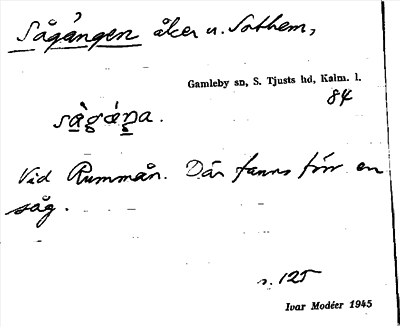 Sågången åker u. Sothem,
Gamleby sn, S. Tjusts hd, Kalm. l.
84
Vid Rummån. Där fanns förr en
såg.
s. 125
Ivar Modéer 1945